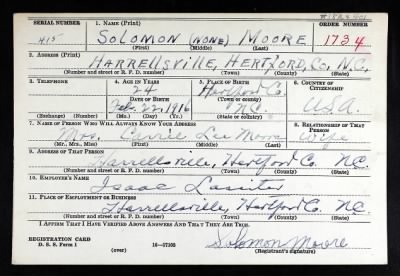 SERIAL NUMBER 1. NAME (Print) ORDER NUMBER
415 SOLOMON (NONE) MOORE 1734
(First) (Middle) (Last)
2. ADDRESS (Print)
HARRELLSVILLE, HERTFORD, Co, N.C,
(Number and street or R. F. D. number) (Town) (County) (State)
3. TELEPHONE 4. AGE IN YEARS 5. PLACE OF BIRTH 6. COUNTRY OF CITIZENSHIP
24 Hertford Co.
DATE OF BIRTH (Town or county)
Feb. 22, 1916 N.C. U.S.A.
(Exchange) (Number) (Mo.) (Day) (Yr.) (State or country)
7. NAME OF PERSON WHO WILL ALWAYS KNOW YOUR ADDRESS 8. RELATIONSHIP OF THAT PERSON
Mrs. Lee Moore Wife
(Mr., Mrs., Miss) (First) (Middle) (Last)
9. ADDRESS OF THAT PERSON
Harrellsville, Hertford Co. N.C.
(Number and street or R. F. D. number) (Town) (County) (State)
10. EMPLOYER'S NAME
Isaac Lassiter
11. PLACE OF EMPLOYMENT OR BUSINESS
Harrellsville, Hertford Co. N.C.
(Number and street or R. F. D. number) (Town) (County) (State)
I AFFIRM THAT I HAVE VERIFIED ABOVE ANSWERS AND THAT THEY ARE TRUE.
REGISTRATION CARD
D. S. S. Form 1 (over) 16—17105 Solomon Moore
(Registrant's signature)